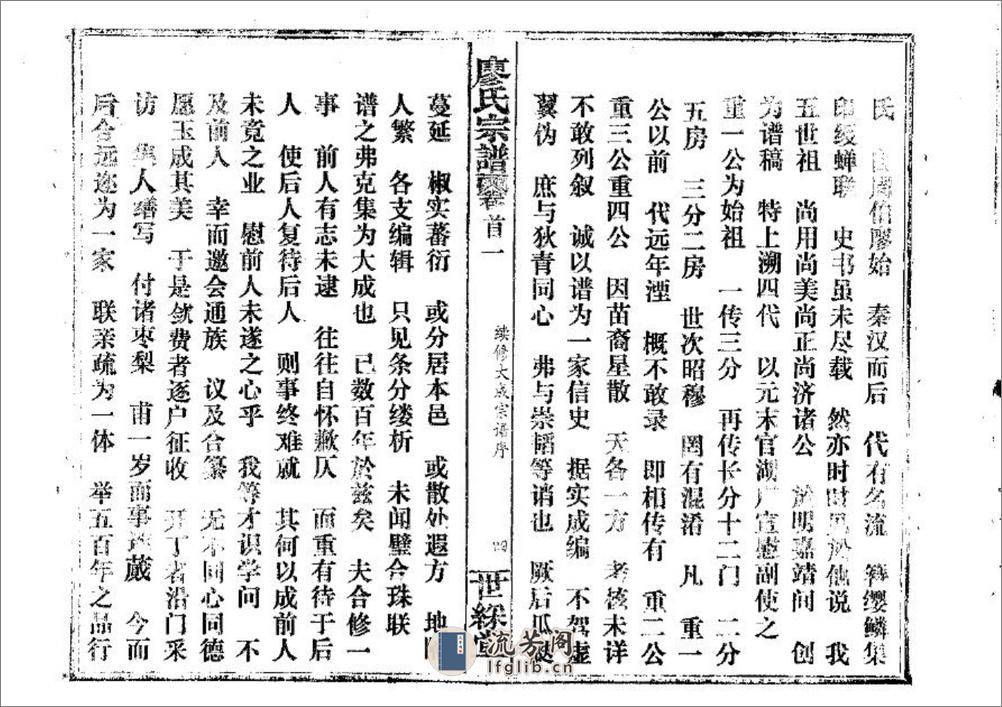 氏 自周伯廖始 秦汉而后 代有名流 簪缨鳞集
印绶蝉联 史书虽未尽载 然亦时时见於他说 我
五世祖 尚用尚美尚正尚济诸公 於明嘉靖间 创
为谱稿 特上溯四代 以元末官湖广宣慰副使之
重一公为始祖 一传三分 再传长分十二门 二分
五房 三分二房 世次昭穆 罔有混淆 凡 重一
公以前 代远年湮 概不敢录 即相传有 重二公
重三公重四公 因苗裔星散 天各一方 考核未详
不敢列叙 诚以谱为一家信史 据实成编 不驾虚
翼伪 庶与狄青同心 弗与崇韬等诮也 厥后瓜瓞
廖氏宗譜 卷首一
续修大成宗谱序
四
世綵堂
蔓延 椒实蕃衍 或分居本邑 或散处遐方 地
人繁 各支编辑 只见条分缕析 未闻璧合珠联
谱之弗克集为大成也 已数百年於兹矣 夫合修一
事 前人有志未逮 往往自怀歉仄 而重有待于后
人 使后人复待后人 则事终难就 其何以成前人
未竟之业 慰前人未遂之心乎 我等才识学问 不
及前人 幸而邀会通族 议及合纂 无不同心同德
愿玉成其美 于是敛费者逐户征收 开丁者沿门采
访 集人缮写 付诸枣梨 甫一岁而事遂蒇 今而
后合远迩为一家 联亲疏为一体 举五百年之品行
流芳阁
lfglib.cn